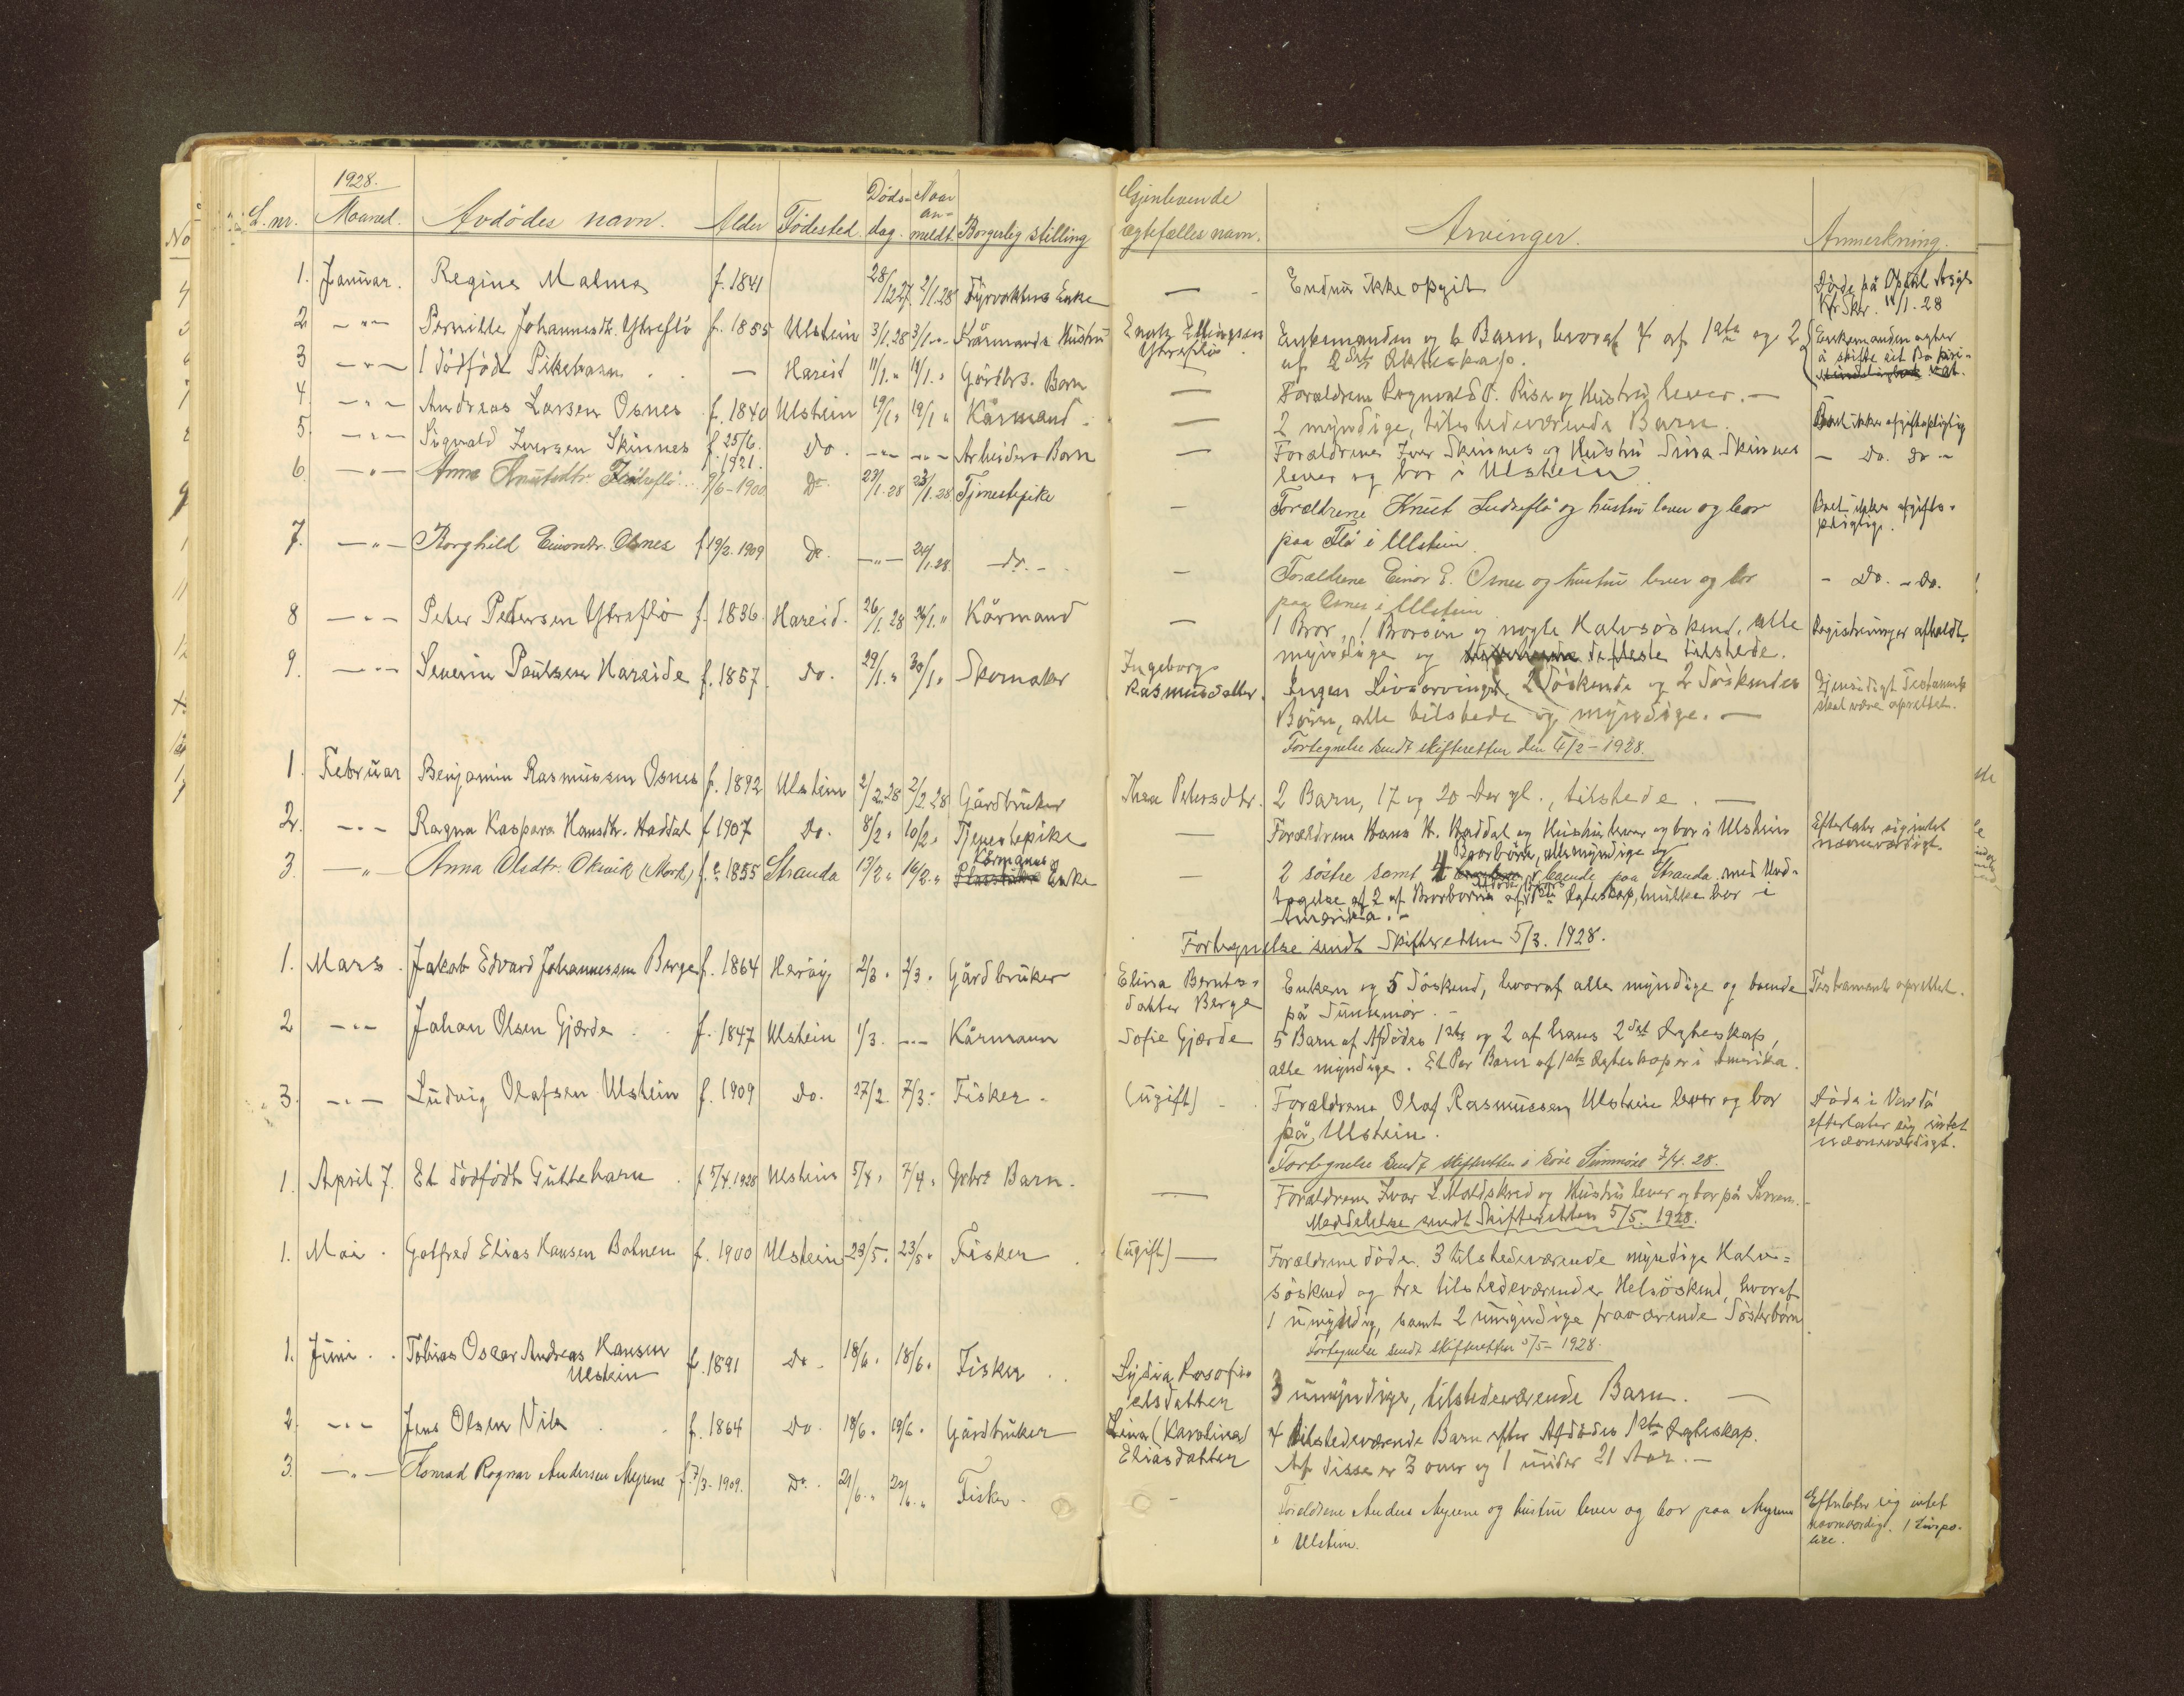 1928.
L. nr. Maaned. Avdödes navn. Alder Födested. Döds- dag. Naar an- meldt. Borgerlig stilling Gjenlevende ægtefælles navn. Arvinger. Anmerkning.
1. Januar. Regine Malmes f. 1841 28/12 27 2/1.28 Fyrvokters Enke — Endnu ikke opgit Döde på Opdöl Asyl
14/1-28
2 -"- Pernille Johannesdtr. Ytreflö f. 1855 Ulstein 3/1.28 3/1.- Kårmands Hustru Enok Ellingsen Enkemanden og 6 Barn, hvoraf 4 af 1ste og 2 Enkemanden agter
Ytreflö af 2det Ekteskap. å skifte sit Bo pri-
vat.
3 -"- 1 dödfödt Pikebarn — Hareid 11/1." 14/1." Gårdbrs. Barn — Forældrene Ragnvald P. Rise og Hustru lever. —
4. -"- Andreas Larsen Osnes f. 1840 Ulstein 19/1." 19/1 " Kårmand — 2 myndige, tilstedeværende Barn. Boet ikke afgiftspligtig
5. -"- Sigvald Iversen Skinnes f. 25/6. 1921. Do. -"- -"- Arbeiders Barn — Forældrene Iver Skinnes og Hustru Sina Skinnes - Do. Do -
lever og bor i Ulstein.
6. -"- Anna Knutsdtr. 9/6-1900 Do. 23/1.28 23/1.28 Tjenestepike — Forældrene Knut Indreflö og hustru lever og bor Boet ikke afgifts-
paa Flö i Ulstein pligtige.
7. -"- Borghild Einorsdtr. Osnes f 19/2. 1909 Do. -"- 24/1.28 - do. - — Forældrene Einor E. Osnes og hustru lever og bor - Do. - Do.
paa Osnes i Ulstein
8 -"- Peter Petersen Ytreflö f. 1836 Hareid. 26/1.28 26/1." Kårmand — 1 Bror, 1 Brorsön og nogle Halvsöskend, alle Registreringer afholdt.
myndige og de fleste tilstede.
9. -"- Severin Paulsen Hareide f. 1857 Do. 29/1." 30/1." Skomaker Ingeborg Ingen Livsarvinger, 2 Söskende og 2 Söskendes Gjensidigt Testament
Rasmusdatter. Börn, alle tilstede og myndige. — skal være oprettet.
Fortegnelse sendt skifteretten den 4/2-1928.
1. Februar Benjamin Rasmussen Osnes f. 1892 Ulstein 2/2.28 2/2 28 Gårdbruker Thea Petersdtr. 2 Barn, 17 og 20 Aar gl., tilstede. —
2. -"- Ragna Kaspara Hansdtr. Haddal f 1907 Do. 8/2 " 10/2 " Tjenestepike — Forældrene Hans H. Haddal og Hustru lever og bor i Ulstein Efterlater sig intet
nævneværdigt.
3. -"- Anna Olsdtr. Oksvik (Mork) f. 1855 Stranda 13/2 " 16/2 " Kårmanns Enke — 2 söstre samt 4 Brorbörn, alle myndige og boende paa Stranda med Und-
tagelse af 2 af Brorbörn af Ægteskap, hvilke bor i
Amerika. -
Fortegnelse sendt Skifteretten 5/3. 1928.
1. Mars. Jakob Edvard Johannessen Berge f. 1864 Heröy 2/3 " 2/3 " Gårdbruker Elina Bernts- Enken og 5 Söskend, hvoraf alle myndige og boende Testament oprettet.
datter Berge på Sunnmör. -
2 -"- Johan Olsen Gjærde f. 1847 Ulstein 1/3. -"- Kårmann Sofie Gjærde 5 Barn af Afdödes 1ste og 2 af hans 2det Ægteskap,
alle myndige. Et Par Barn af 1ste Ægteskap er i Amerika.
3. -"- Ludvig Olafsen Ulstein f. 1909 Do. 27/2. 7/3." Fisker - (ugift) Forældrene Olaf Rasmussen Ulstein lever og bor Döde i Vardö
på Ulstein. efterlater sig intet
nævneværdigt.
Fortegnelse sendt skifteretten i söre Sunnmöre 7/4. 28.
1. April 7. Et dödfödt Guttebarn f 5/4.1928 Ulstein 5/4 " 7/4 " Gbrs Barn. — Forældrene Ivar L. Moldskred og Hustru lever og bor på
Meddelelse sendt Skifteretten 5/5. 1928.
1. Mai. Gotfred Elias Hansen Botnen f. 1900 Ulstein 23/5. 23/5 " Fisker (ugift) — Forældrene döde. 3 tilstedeværende myndige Halv-
söskend og tre tilstedeværende Helsöskend, hvoraf
1 umyndig, samt 2 umyndige fraværende Sösterbörn
Fortegnelse sendt skifteretten 5/5- 1928.
1. Juni. Tobias Oscar Andreas Hansen f. 1891 Do. 18/6 " 18/6 " Fisker Lydia
Ulstein elsdatter 3 umyndige, tilstedeværende Barn. —
2. -"- Jens Olsen Vik f. 1864 Do. 18/6 " 19/6 " Gårdbruker Lina (Karolina) 4 tilstedeværende Barn efter Afdödes 1ste Ægteskap.
Eliasdatter Af disse er 3 over og 1 under 21 Aar. —
3. -"- Konrad Ragnar Andersen Myrene f. 7/3-1909. Do. 21/6 " 22/6 " Fisker - — Forældrene Anders Myrene og hustru lever og bor paa Myrene Efterlater sig intet
i Ulstein. nævneværdigt. 1